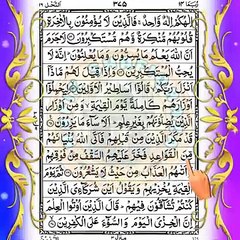 النحل ١٦ ٣٧٥ ربما ١٤
اِلٰهُكُمْ اِلٰهٌ وَّاحِدٌ ۚ فَالَّذِيْنَ لَا يُؤْمِنُوْنَ بِالْاٰخِرَةِ
قُلُوْبُهُمْ مُّنْكِرَةٌ وَّهُمْ مُّسْتَكْبِرُوْنَ لَا جَرَمَ
اَنَّ اللّٰهَ يَعْلَمُ مَا يُسِرُّوْنَ وَمَا يُعْلِنُوْنَ ؕ اِنَّهٗ لَا
يُحِبُّ الْمُسْتَكْبِرِيْنَ وَاِذَا قِيْلَ لَهُمْ مَّاذَاۤ
اَنْزَلَ رَبُّكُمْ ۙ قَالُوْۤا اَسَاطِيْرُ الْاَوَّلِيْنَ لِيَحْمِلُوْۤا
اَوْزَارَهُمْ كَامِلَةً يَّوْمَ الْقِيٰمَةِ ۙ وَمِنْ اَوْزَارِ
الَّذِيْنَ يُضِلُّوْنَهُمْ بِغَيْرِ عِلْمٍ ؕ اَلَا سَآءَ مَا يَزِرُوْنَ
قَدْ مَكَرَ الَّذِيْنَ مِنْ قَبْلِهِمْ فَاَتَى اللّٰهُ بُنْيَانَهُمْ
مِّنَ الْقَوَاعِدِ فَخَرَّ عَلَيْهِمُ السَّقْفُ مِنْ فَوْقِهِمْ
وَاَتٰىهُمُ الْعَذَابُ مِنْ حَيْثُ لَا يَشْعُرُوْنَ ثُمَّ يَوْمَ
الْقِيٰمَةِ يُخْزِيْهِمْ وَيَقُوْلُ اَيْنَ شُرَكَآءِيَ الَّذِيْنَ
كُنْتُمْ تُشَآقُّوْنَ فِيْهِمْ ؕ قَالَ الَّذِيْنَ اُوْتُوا الْعِلْمَ
اِنَّ الْخِزْيَ الْيَوْمَ وَالسُّوْٓءَ عَلَى الْكٰفِرِيْنَ